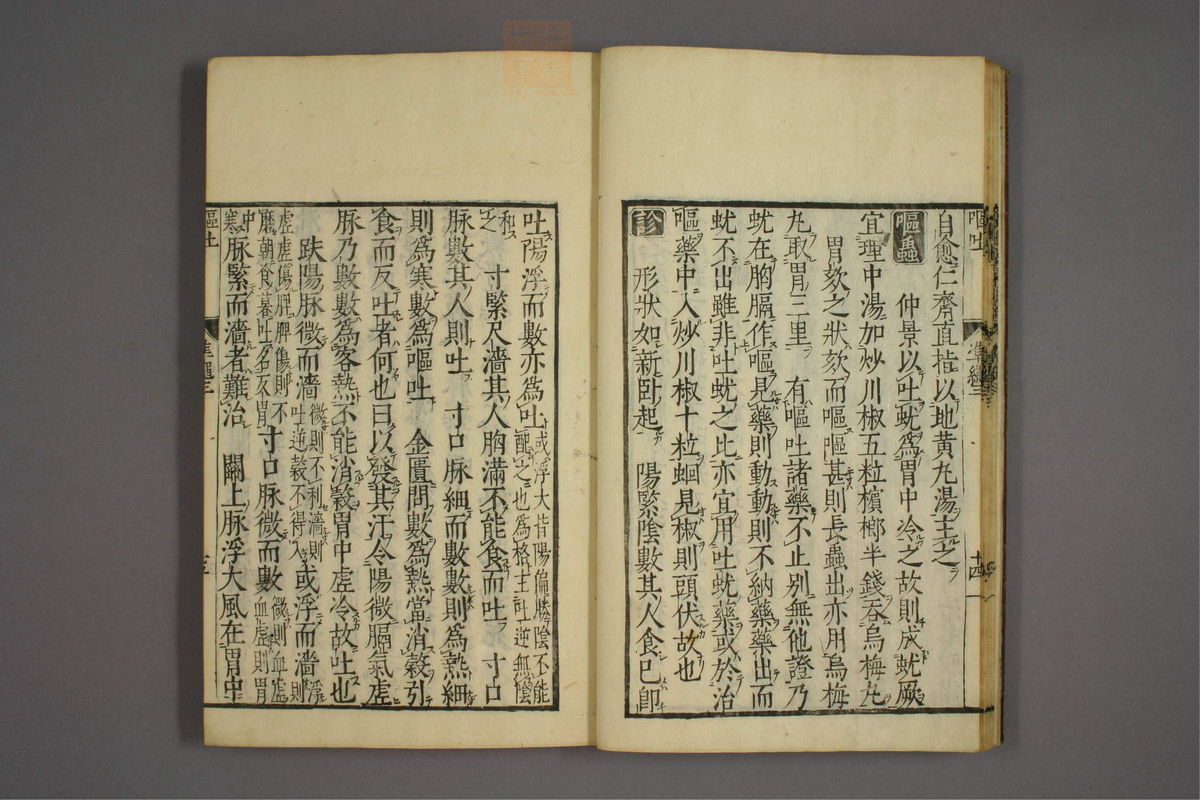 嘔吐
準繩三
十四
自愈仁齋直指以地黃丸湯主之
嘔蟲 仲景以吐蚘爲胃中冷之故則成蚘厥
宜理中湯加炒川椒五粒檳榔半錢吞烏梅丸
胃欬之狀欬而嘔嘔甚則長蟲出亦用烏梅
丸取胃三里 有嘔吐諸藥不止別無他證乃
蚘在胸膈作嘔見藥則動動則不納藥藥出而
蚘不出雖非吐蚘之比亦宜用吐蚘藥或於治
嘔藥中入炒川椒十粒蛔見椒則頭伏故也
診 形狀如新臥起 陽緊陰數其人食已卽
吐陽浮而數亦爲吐或浮大皆陽偏勝陰不能配之之也爲格主吐逆無陰
和之 寸緊尺濇其人胸滿不能食而吐 寸口
脉數其人則吐 寸口脉細而數數則爲熱細
則爲寒數爲嘔吐 金匱問數爲熱當消穀引
食而反吐者何也曰以發其汗令陽微膈氣虛
脉乃數數爲客熱不能消穀胃中虛冷故吐也
趺陽脉微而濇微則不利濇則吐逆穀不得入或浮而濇浮則
虛虛傷脾脾傷則不磨朝食暮吐名反胃寸口脉微而數微則血虛血虛則胃
中寒脉緊而濇者難治 關上脉浮大風在胃中
嘔吐
準繩三